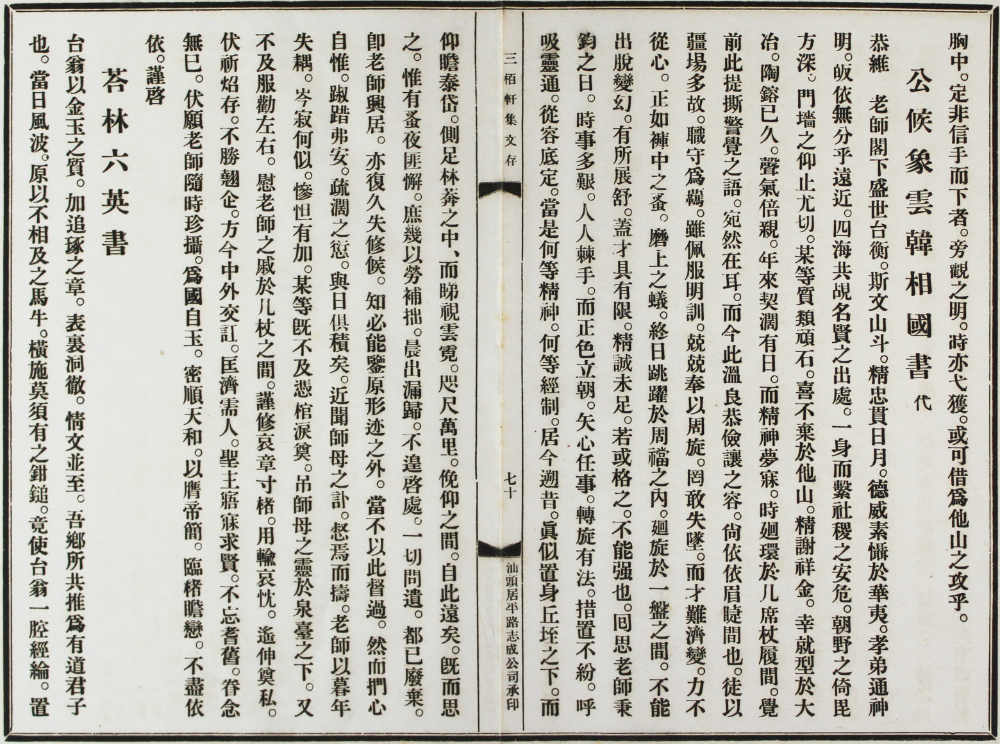 胸中。定非信手而下者。旁觀之明。時亦弋獲。或可借爲他山之攻乎。
公候象雲韓相國書 代
恭維　老師閣下盛世台衡。斯文山斗。精忠貫日月。德威素懾於華夷。孝弟通神
明。皈依無分乎遠近。四海共覘名賢之出處。一身而繫社稷之安危。朝野之倚毘
方深。門墻之仰止尤切。某等質頽頑石。喜不棄於他山。精謝祥金。幸就型於大
冶。陶鎔已久。聲氣倍親。年來契濶有日。而精神夢寐。時廻環於几席杖履間。覺
前此提撕警覺之語。宛然在耳。而今此溫良恭儉讓之容。尙依依眉睫間也。徒以
疆埸多故。職守爲羈。雖佩服明訓。兢兢奉以周旋。罔敢失墜。而才難濟變。力不
從心。正如褌中之蚤。磨上之蟻。終日跳躍於周襠之內。廻旋於一盤之間。不能
出脫變幻。有所展舒。蓋才具有限。精誠未足。若或格之。不能强也。囘思老師秉
鈞之日。時事多艱。人人棘手。而正色立朝。矢心任事。轉旋有法。措置不紛。呼
吸靈通。從容底定。當是何等精神。何等經制。居今遡昔。眞似置身丘垤之下。而
三栢軒集文存
七十
汕頭居平路志成公司承印
仰瞻泰岱。側足林莽之中、而睇視雲霓。咫尺萬里。俛仰之間。自此遠矣。旣而思
之。惟有蚤夜匪懈。庶幾以勞補拙。晨出漏歸。不遑啓處。一切問遺。都已廢棄。
卽老師興居。亦復久失修候。知必能鑒原形迹之外。當不以此督過。然而捫心
自惟。踧踖弗安。疏濶之愆。與日俱積矣。近聞師母之訃。惄焉而擣。老師以暮年
失耦。岑寂何似。慘怛有加。某等旣不及憑棺淚奠。吊師母之靈於泉臺之下。又
不及服勸左右。慰老師之戚於几杖之間。謹修哀章寸楮。用輸哀忱。遙伸奠私。
伏祈炤存。不勝翹企。方今中外交訌。匡濟需人。聖主寤寐求賢。不忘耆舊。眷念
無已。伏願老師隨時珍攝。爲國自玉。密順天和。以膺帝簡。臨楮瞻戀。不盡依
依。謹啓
荅林六英書
台翁以金玉之質。加追琢之章。表裏洞徹。情文並至。吾鄉所共推爲有道君子
也。當日風波。原以不相及之馬牛。橫施莫須有之鉗鎚。竟使台翁一腔經綸。置